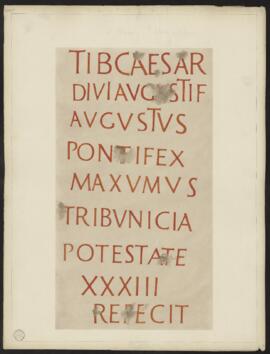 TIB CAESAR
DIVI AVGVSTI F
AVGVSTVS
PONTIFEX
MAXVMVS
TRIBVNICIA
POTESTATE
XXXIII
REFECIT